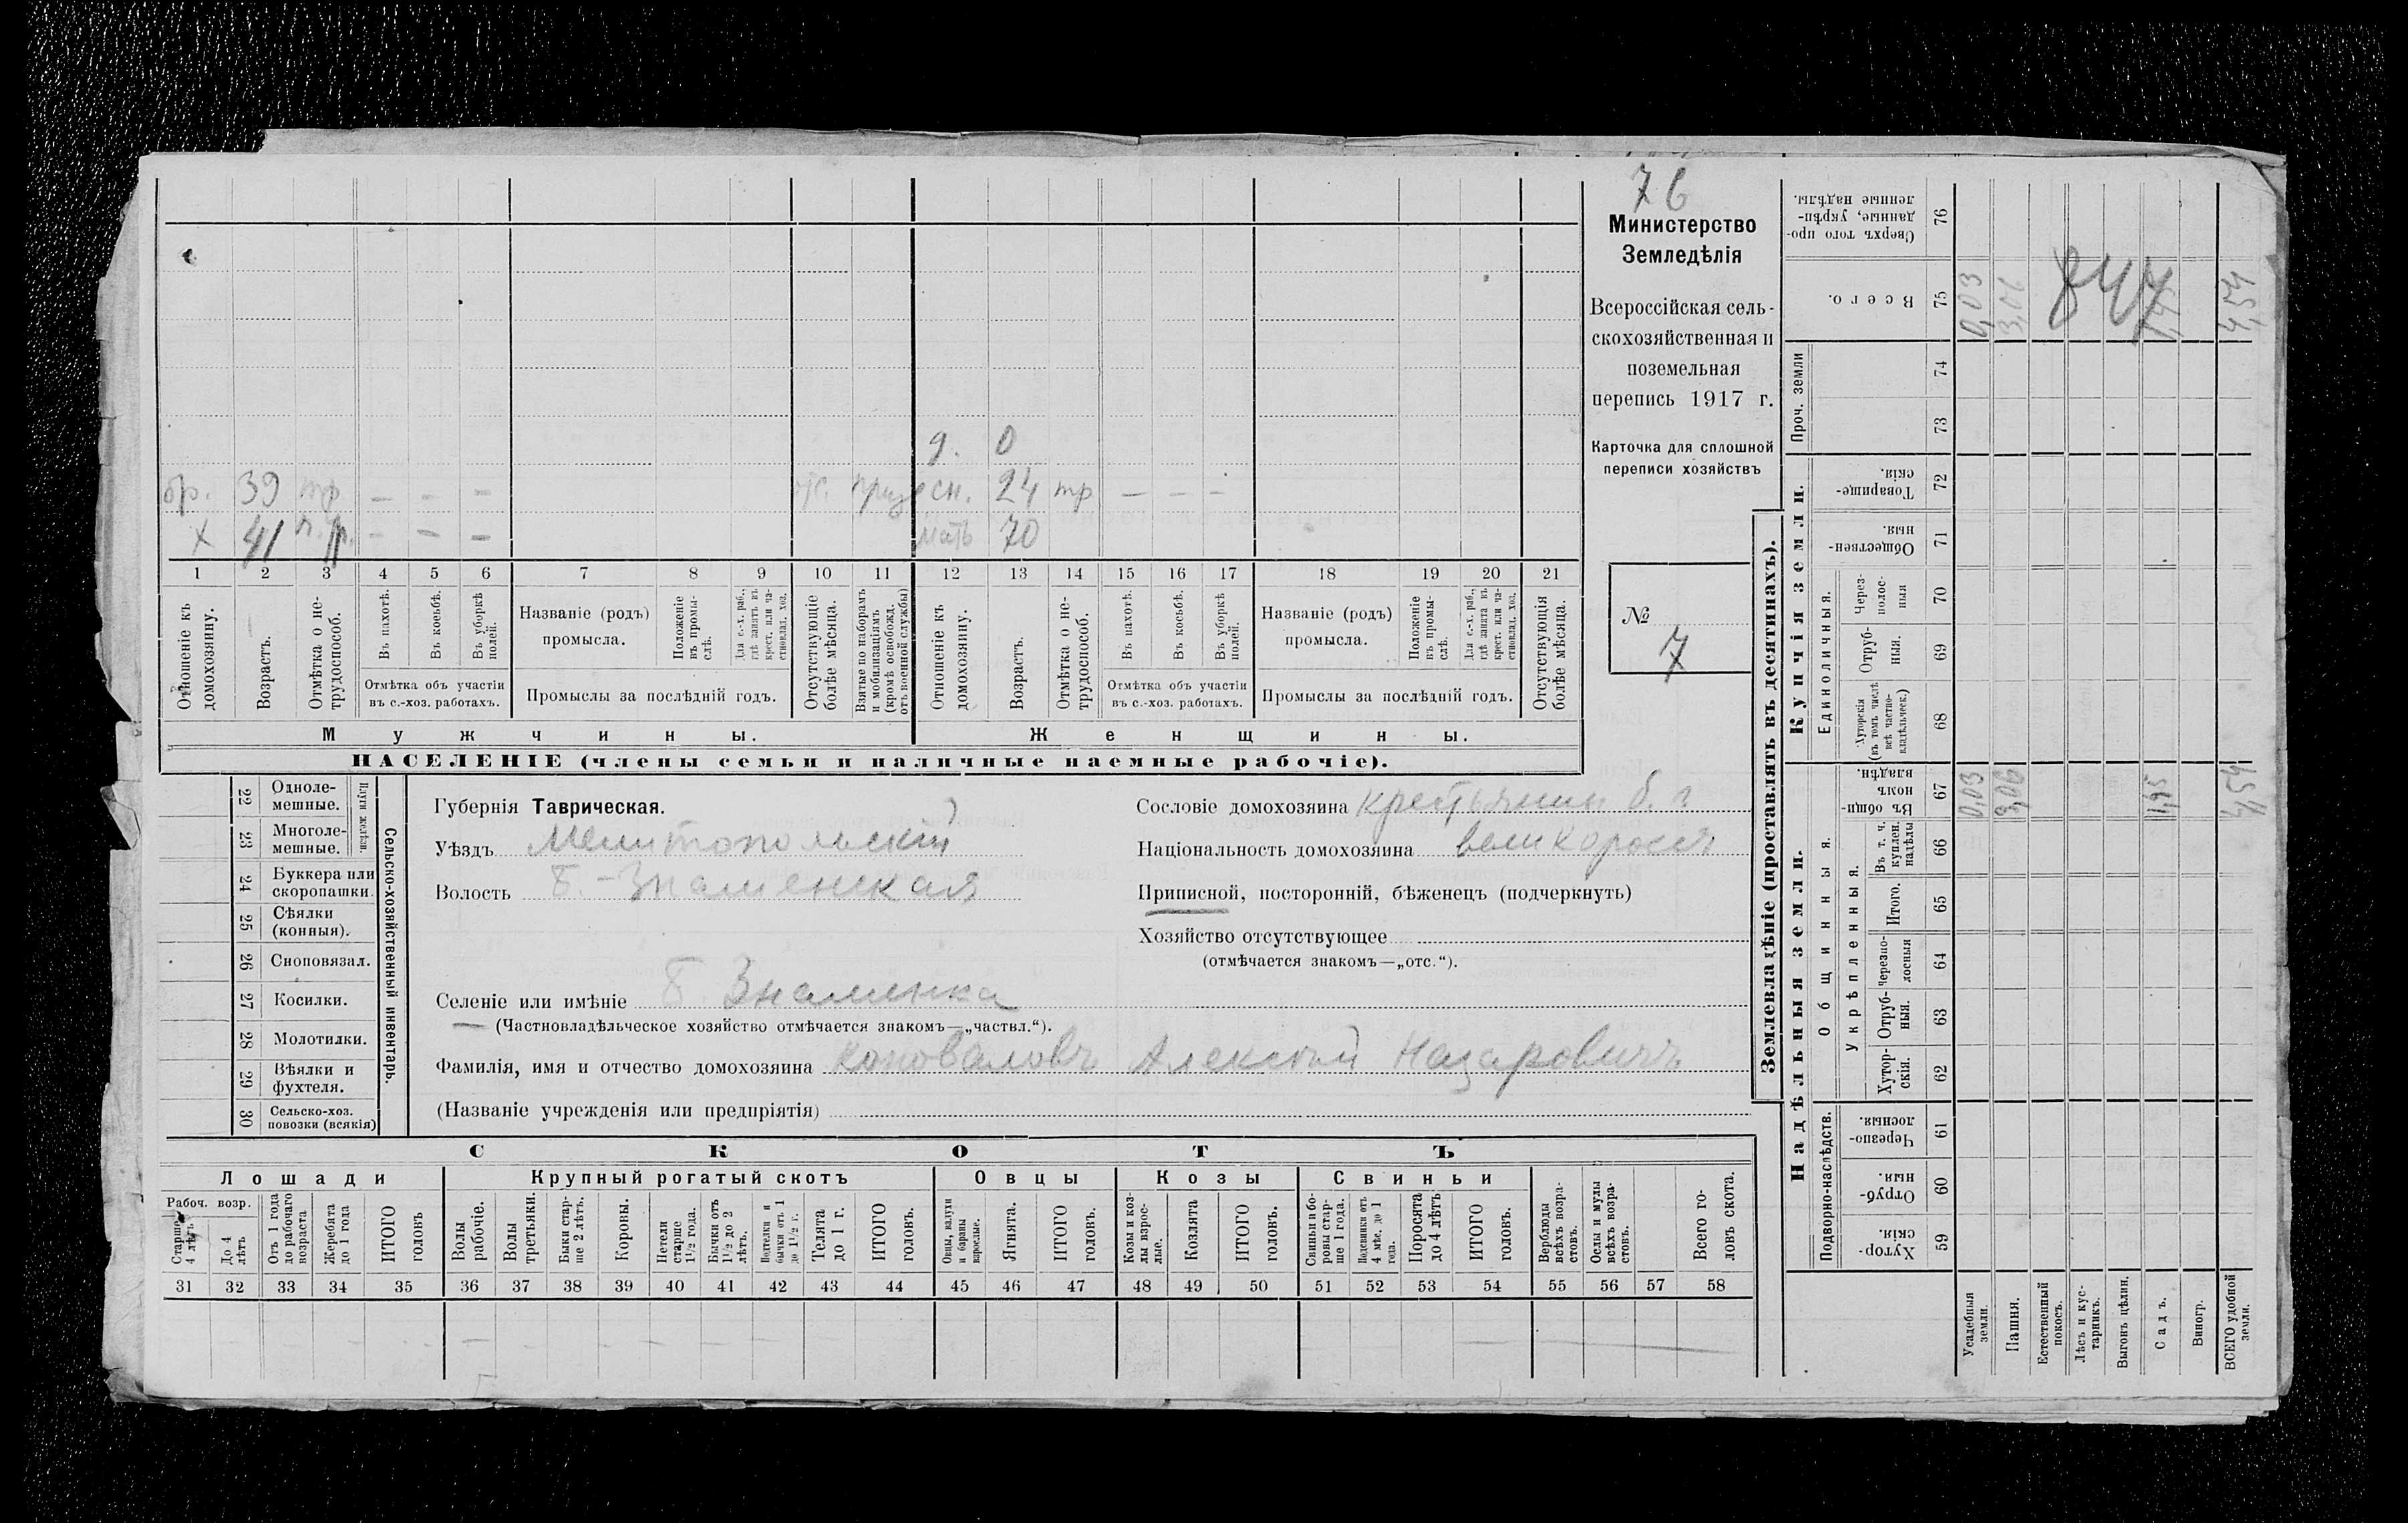 76
Министерство
Земледѣлія
Всероссійская сель-
скохозяйственная и
поземельная
перепись 1917 г.
Карточка для сплошной
переписи хозяйствъ
№
7
д. 0
бр. 39 тр — — — приз сн. 24 тр — — —
х 41 — — — мать 70
1 2 3 4 5 6 7 8 9 10 11 12 13 14 15 16 17 18 19 20 21
Отношеніе къ домохозяину.
Возрастъ.
Отмѣтка о не-трудоспособ.
Въ пахотѣ.
Въ косьбѣ.
Въ уборкѣ полей.
Отмѣтка объ участіи
въ с.-хоз. работахъ.
Названіе (родъ)
промысла.
Положеніе въ промы-слѣ.
Для с.-х. раб., гдѣ занятъ въ крест. или ча-стновлад. хоз.
Промыслы за послѣдній годъ.
Отсутствующіе болѣе мѣсяца.
Взятые по наборамъ и мобилизаціямъ (кромѣ освобожд. отъ военной службы)
Отношеніе къ домохозяину.
Возрастъ.
Отмѣтка о не-трудоспособ.
Въ пахотѣ.
Въ косьбѣ.
Въ уборкѣ полей.
Отмѣтка объ участіи
въ с.-хоз. работахъ.
Названіе (родъ)
промысла.
Положеніе въ промы-слѣ.
Для с.-х. раб., гдѣ занята въ крест. или ча-стновлад. хоз.
Промыслы за послѣдній годъ.
Отсутствующія болѣе мѣсяца.
Мужчины. Женщины.
НАСЕЛЕНІЕ (члены семьи и наличные наемные рабочіе).
22 Одноле-мешные.
23 Многоле-мешные.
Плуги желѣзн.
24 Буккера или скоропашки.
25 Сѣялки (конныя).
26 Сноповязал.
27 Косилки.
28 Молотилки.
29 Вѣялки и фухтеля.
30 Сельско-хоз. повозки (всякія)
Сельско-хозяйственный инвентарь.
Губернія Таврическая.
Уѣздъ Мелитопольскій
Волость Б.-Знаменская
Селеніе или имѣніе Б. Знаменка
(Частновладѣльческое хозяйство отмѣчается знакомъ—„частвл.“).
Фамилія, имя и отчество домохозяина Коноваловъ Алексѣй Назаровичъ
(Названіе учрежденія или предпріятія)
Сословіе домохозяина крестьянин б. г
Національность домохозяина великороссъ
Приписной, посторонній, бѣженецъ (подчеркнуть)
Хозяйство отсутствующее
(отмѣчается знакомъ—„отс.“).
СКОТЪ
Лошади Крупный рогатый скотъ Овцы Козы Свиньи
Рабоч. возр.
Старше 4 лѣтъ
До 4 лѣтъ
Отъ 1 года до рабочаго возраста
Жеребята до 1 года
ИТОГО головъ
Волы рабочіе.
Волы третьяки.
Быки стар-ше 2 лѣтъ.
Коровы.
Нетели старше 1½ года.
Бычки отъ 1½ до 2 лѣтъ.
Подтелки и бычки отъ 1 до 1½ г.
Телята до 1 г.
ИТОГО головъ.
Овцы, валухи и бараны взрослые.
Ягнята.
ИТОГО головъ.
Козы и коз-лы взрос-лые.
Козлята
ИТОГО головъ.
Свиньи и бо-ровы стар-ше 1 года.
Подсвинки отъ 4 мѣс. до 1 года.
Поросята до 4 лѣтъ
ИТОГО головъ.
Верблюды всѣхъ возра-стовъ.
Ослы и мулы всѣхъ возра-стовъ.
Всего го-ловъ скота.
31 32 33 34 35 36 37 38 39 40 41 42 43 44 45 46 47 48 49 50 51 52 53 54 55 56 57 58
Землевладѣніе (проставлять въ десятинахъ).
Надѣльныя земли.
Купчія земли.
Проч. земли
Подворно-наслѣдств.
Общинныя.
Укрѣпленныя.
Единоличныя.
Сверхъ того про-данные, укрѣп-ленные надѣлы. 76
Всего. 75 0,03 3,06 847 4,54
74
73
Товарище-скія. 72
Обществен-ныя. 71
Через-полос-ныя 70
Отруб-ныя. 69
Хуторскія (въ томъ числѣ всѣ частно-владѣльческ.) 68
Въ общи-номъ владѣн. 67 0,03 3,06 1,45 4,54
Въ т. ч. куплен. надѣлы 66
Итого. 65
Черезпо-лосныя 64
Отруб-ныя. 63
Хутор-скія. 62
Черезпо-лосныя. 61
Отруб-ныя. 60
Хутор-скія. 59
Усадебныя земли.
Пашня.
Естественный покосъ.
Лѣсъ и кус-тарникъ.
Выгонъ цѣлин.
Садъ.
Виногр.
ВСЕГО удобной земли.